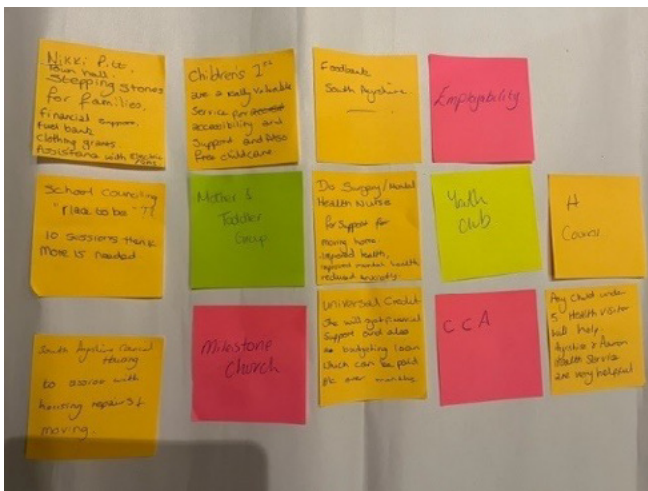 Nikki Pitt
Town hall.
Stepping Stones
for families.
financial support.
fuel bank
clothing grants.
Assistance with Electric
Children's 1st
are a really valuable
Service for
accessibility and
Support and also
free childcare.
Foodbank
South Ayrshire.
Employability
School counciling
"rise to be"
10 sessions think
more is needed
Mother &
Toddler
Group.
Surgery/Mental
Health Nurse
for support for
moving home.
improved health,
improved mental health
reduced anxiety.
Youth
club
H
Council
South Ayrshire Council
Housing
to assist with
housing repairs &
moving.
Milestone
Church
Universal Credit
She will get financial
Support and also
a budgeting loan
which can be paid
over months
CCA
Any child under
5 Health Visitor
will help.
Ayrshire & Arran
Health Service
are very helpful